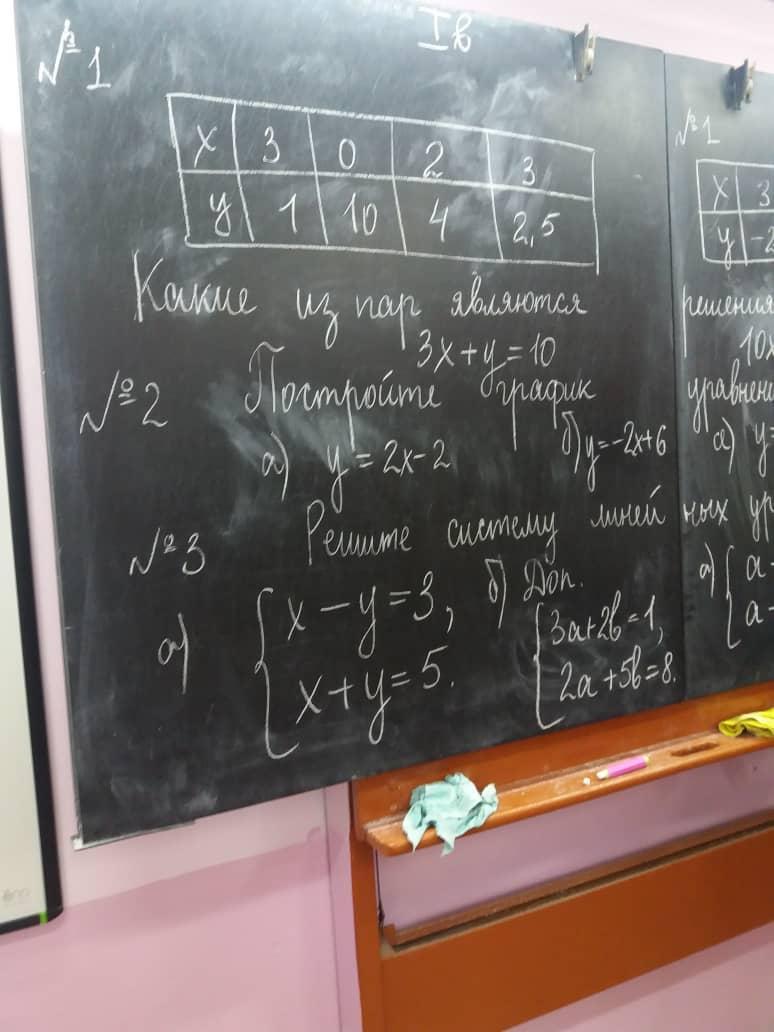 I в
№1
x 3 0 2 3
y 1 10 4 2,5
Какие из пар являются
3x+y=10
№2 Постройте график
а) y=2x-2 б) y=-2x+6
№3 Решите систему линей
а) { x-y=3, б) Доп. { 3a+2b=1,
x+y=5. 2a+5b=8.
№1
x 3
y -2
решения
10x
уравнени
а) y=
ных ур
а) { a-
a-